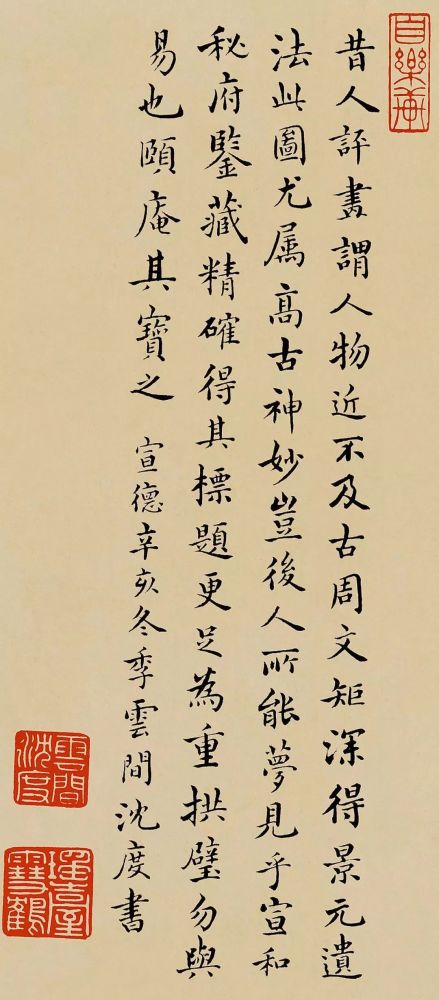 昔人評畫謂人物近不及古周文矩深得景元遺
法此圖尤属高古神妙豈後人所能夢見乎宣和
秘府鑒藏精確得其標題更足為重拱璧勿與
易也頤庵其寶之 宣德辛亥冬季雲間沈度書
自樂軒
雲間沈度